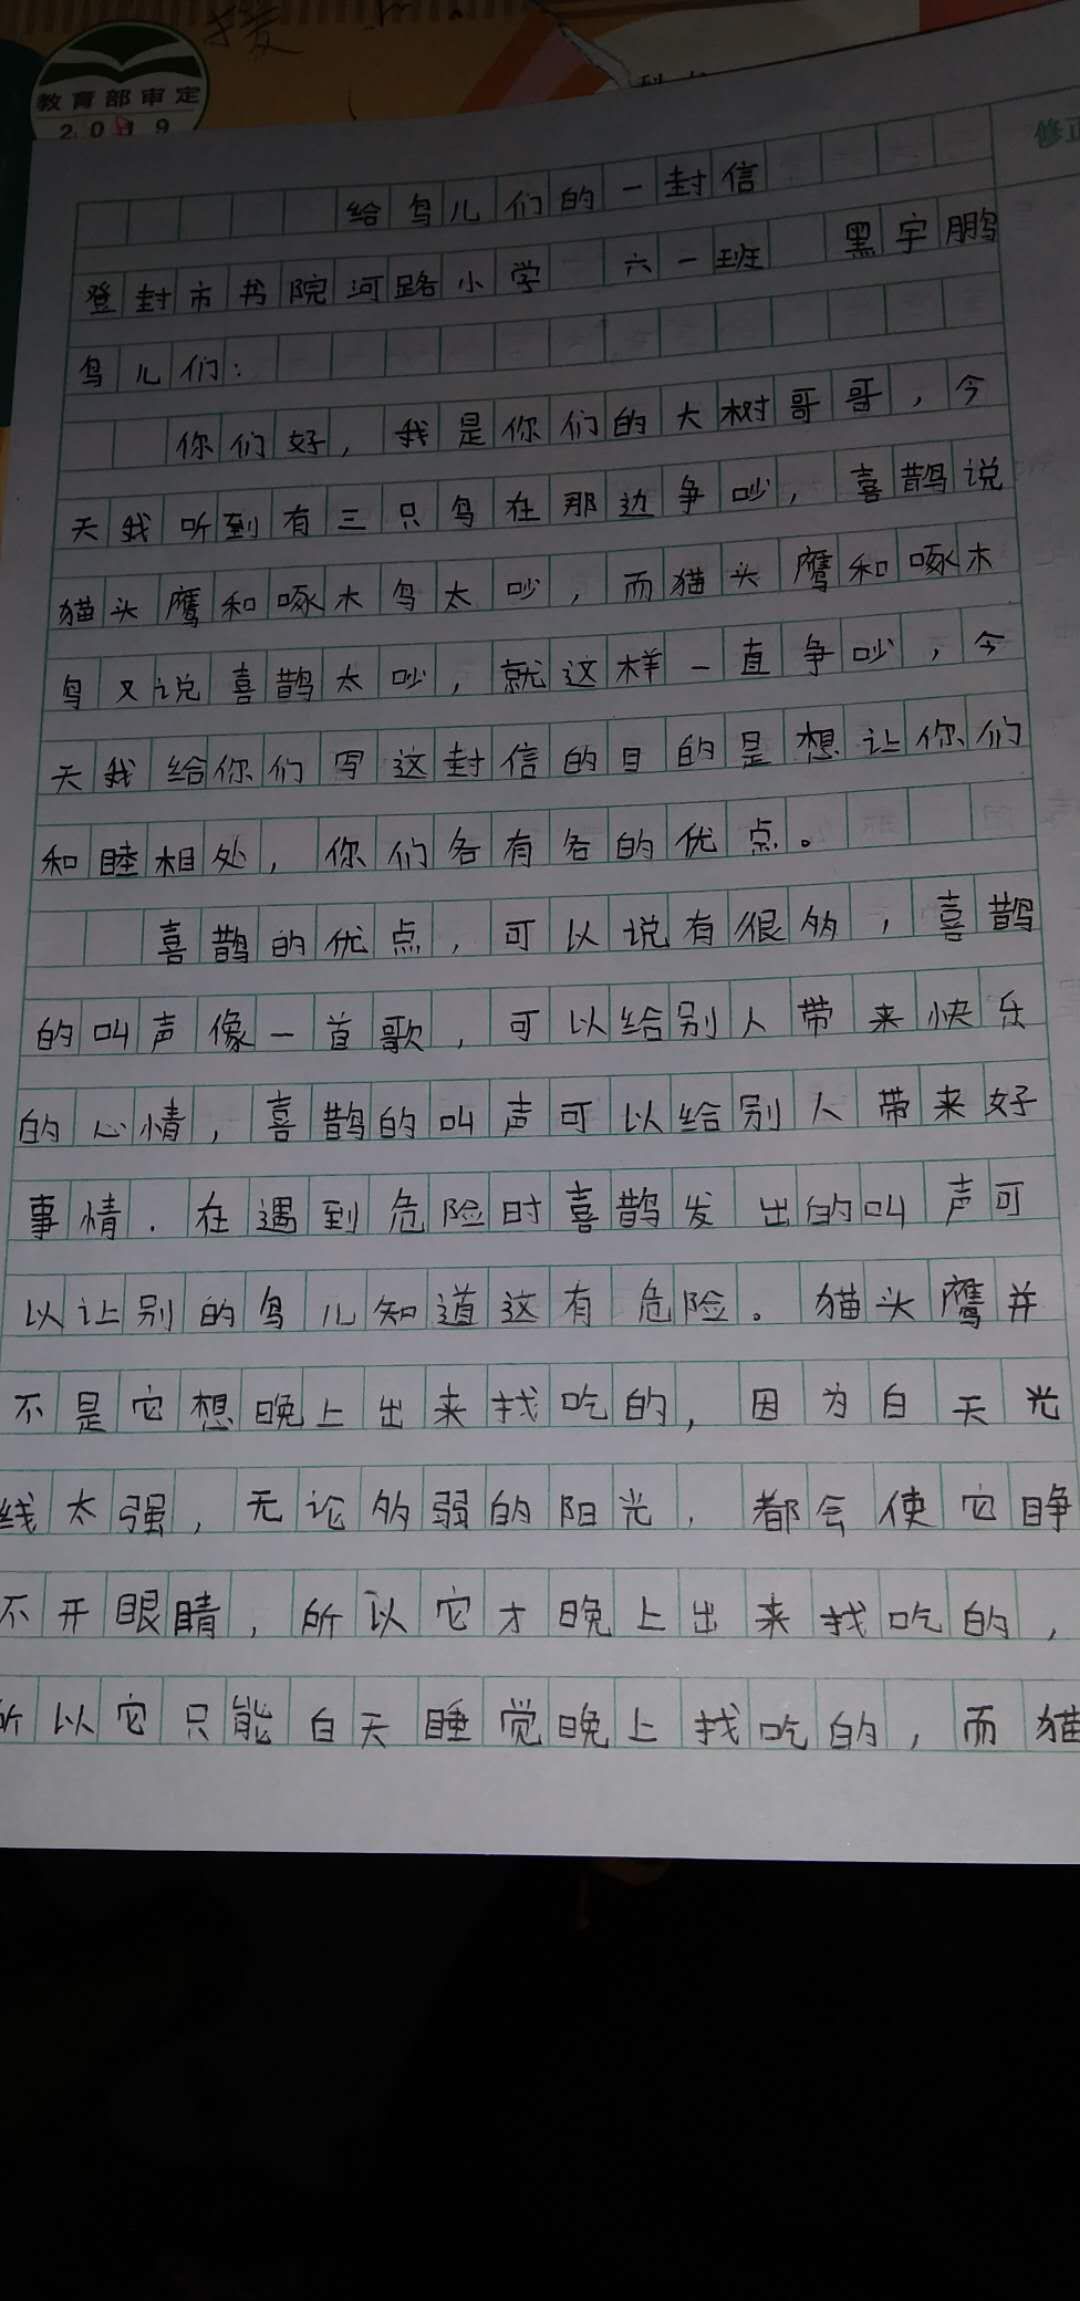 教育部审定
2019
修正
给鸟儿们的一封信
登封市书院河路小学 六一班 黑宇鹏
鸟儿们:
你们好，我是你们的大树哥哥，今
天我听到有三只鸟在那边争吵，喜鹊说
猫头鹰和啄木鸟太吵，而猫头鹰和啄木
鸟又说喜鹊太吵，就这样一直争吵，今
天我给你们写这封信的目的是想让你们
和睦相处，你们各有各的优点。
喜鹊的优点，可以说有很多，喜鹊
的叫声像一首歌，可以给别人带来快乐
的心情，喜鹊的叫声可以给别人带来好
事情．在遇到危险时喜鹊发出的叫声可
以让别的鸟儿知道这有危险。猫头鹰并
不是它想晚上出来找吃的，因为白天光
线太强，无论多弱的阳光，都会使它睁
不开眼睛，所以它才晚上出来找吃的，
所以它只能白天睡觉晚上找吃的，而猫